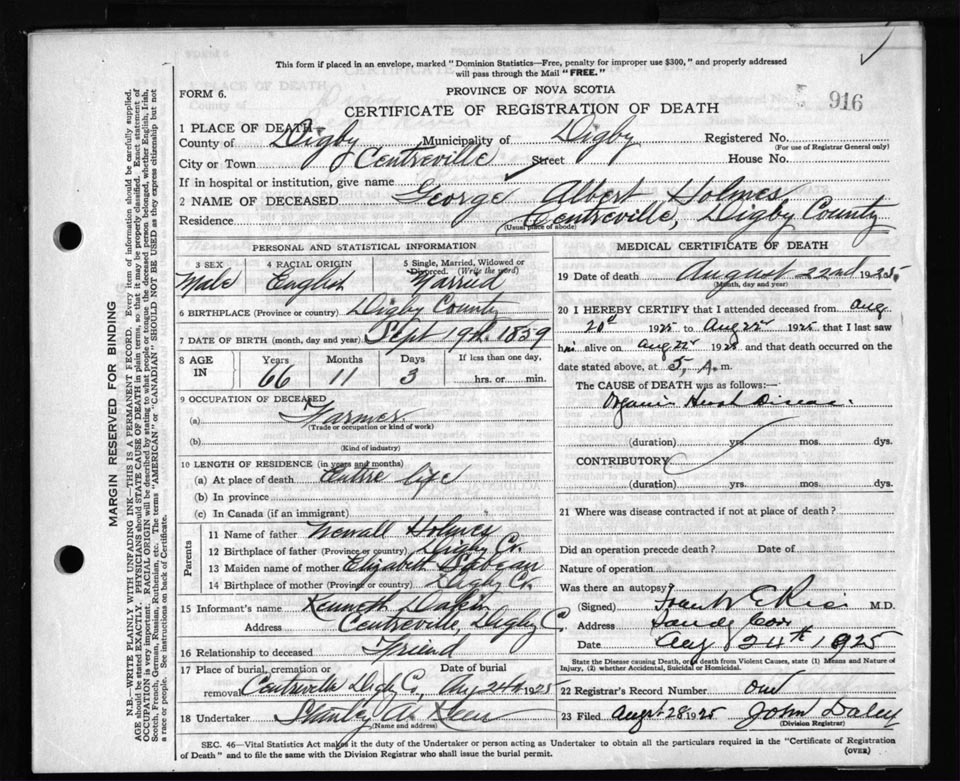 This form if placed in an envelope, marked "Dominion Statistics—Free, penalty for improper use $300," and properly addressed
will pass through the Mail "FREE."
FORM 6.
PROVINCE OF NOVA SCOTIA
CERTIFICATE OF REGISTRATION OF DEATH
916
1 PLACE OF DEATH—
County of Digby Municipality of Digby Registered No.
(For use of Registrar General only)
City or Town Centreville Street House No.
If in hospital or institution, give name
2 NAME OF DECEASED George Albert Holmes
Residence Centreville, Digby County
(Usual place of abode)
PERSONAL AND STATISTICAL INFORMATION
3 SEX 4 RACIAL ORIGIN 5 Single, Married, Widowed or
Divorced. (Write the word)
Male English Married
6 BIRTHPLACE (Province or country) Digby County
7 DATE OF BIRTH (month, day and year) Sept 19th 1859
8 AGE IN Years Months Days If less than one day,
66 11 3 hrs. or min.
9 OCCUPATION OF DECEASED
(a) Farmer
(Trade or occupation or kind of work)
(b)
(Kind of industry)
10 LENGTH OF RESIDENCE (in years and months)
(a) At place of death Entire life
(b) In province
(c) In Canada (if an immigrant)
Parents
11 Name of father Newall Holmes
12 Birthplace of father (Province or country) Digby Co.
13 Maiden name of mother Elizabeth
14 Birthplace of mother (Province or country) Digby Co.
15 Informant's name Kenneth Dakin
Address Centreville, Digby C.
16 Relationship to deceased Friend
17 Place of burial, cremation or Date of burial
removal Centreville Digby Co., Aug 24th 1925
18 Undertaker Stanley A.
(Name and address)
MEDICAL CERTIFICATE OF DEATH
19 Date of death August 22nd 1925.
(Month, day and year)
20 I HEREBY CERTIFY that I attended deceased from Aug
20th 1925 to Aug 22 1925 that I last saw
him alive on Aug 22 1925 and that death occurred on the
date stated above, at 5, A. m.
The CAUSE of DEATH was as follows:—
Organic Heart Disease.
(duration) yrs. mos. dys.
CONTRIBUTORY
(duration) yrs. mos. dys.
21 Where was disease contracted if not at place of death?
Did an operation precede death? Date of
Nature of operation
Was there an autopsy?
(Signed) Frank E Rice M.D.
Address Sandy Cove
Date Aug 24th 1925
State the Disease causing Death, or in death from Violent Causes, state (1) Means and Nature of
Injury, (2) whether Accidental, Suicidal or Homicidal.
22 Registrar's Record Number one
23 Filed August 28 1925 John Daley
(Division Registrar)
SEC. 46—Vital Statistics Act makes it the duty of the Undertaker or person acting as Undertaker to obtain all the particulars required in the "Certificate of Registration
of Death" and to file the same with the Division Registrar who shall issue the burial permit. (OVER)
MARGIN RESERVED FOR BINDING
N.B.—WRITE PLAINLY WITH UNFADING INK—THIS IS A PERMANENT RECORD. Every item of information should be carefully supplied.
AGE should be stated EXACTLY. PHYSICIANS should STATE CAUSE OF DEATH in plain terms, so that it may be properly classified. Exact statement of
OCCUPATION is very important. RACIAL ORIGIN will be described by stating to what people or tongue the deceased person belonged, whether English, Irish,
Scotch, French, German, Russian, Ruthenian, etc. The terms "AMERICAN" or "CANADIAN" SHOULD NOT BE USED as they express citizenship but not
a race or people. See instructions on back of Certificate.